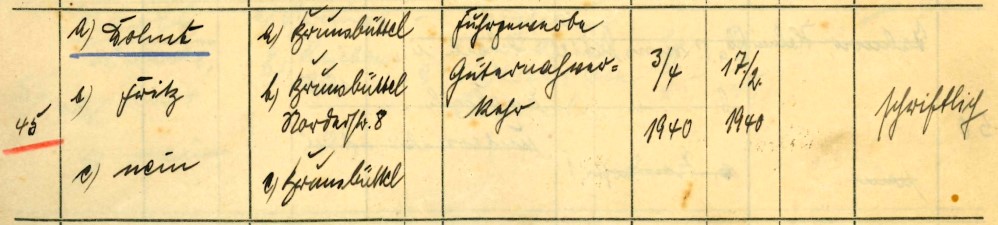 45
a) Kolmk
b) Fritz
c) nein
a) Brunsbüttel
b) Brunsbüttel
Norderstr. 8
c) Brunsbüttel
Fuhrgewerbe
Güternahver=
kehr
3/4
1940
17/2.
1940
schriftlich